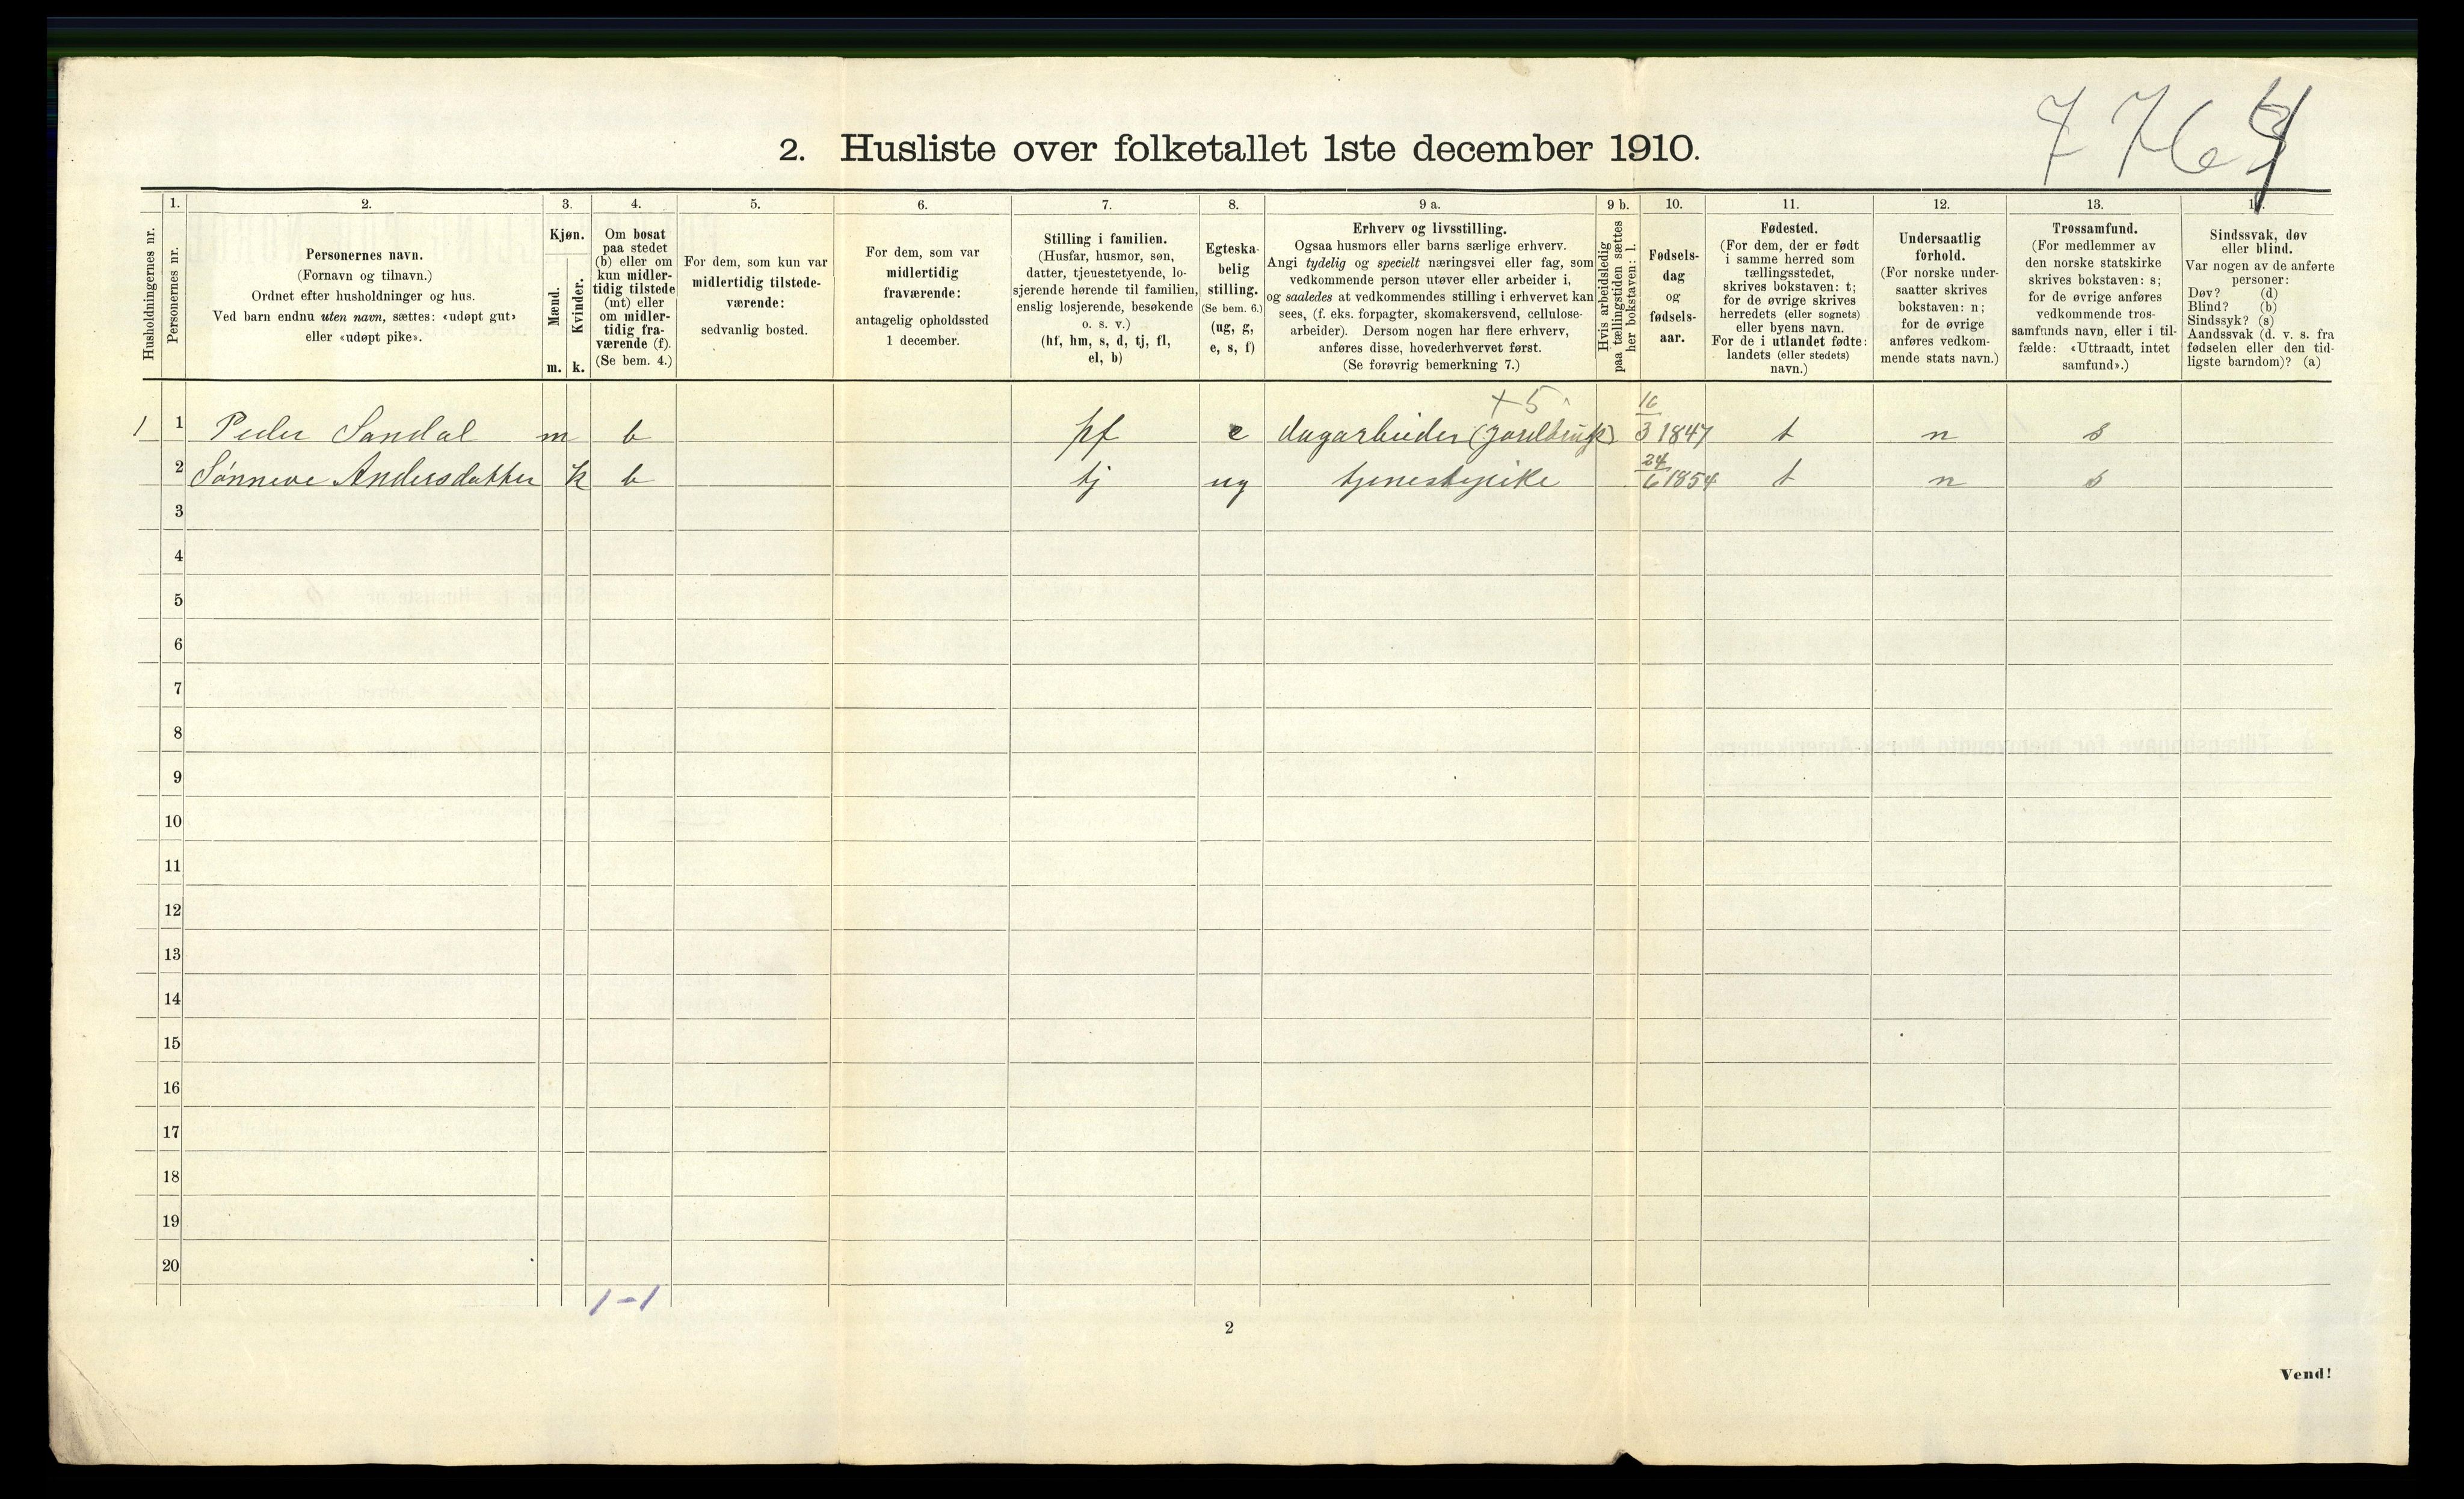 2. Husliste over folketallet 1ste december 1910.
1. 2. 3. 4. 5. 6. 7. 8. 9 a. 9 b. 10. 11. 12. 13.
Husholdningernes nr.
Personernes nr.
Personernes navn.
(Fornavn og tilnavn.)
Ordnet efter husholdninger og hus.
Ved barn endnu uten navn, sættes: «udøpt gut»
eller «udøpt pike».
Kjøn.
Mænd.
Kvinder.
m. k.
Om bosat
paa stedet
(b) eller om
kun midler-
tidig tilstede
(mt) eller
om midler-
tidig fra-
værende (f).
(Se bem. 4.)
For dem, som kun var
midlertidig tilstede-
værende:
sedvanlig bosted.
For dem, som var
midlertidig
fraværende:
antagelig opholdssted
1 december.
Stilling i familien.
(Husfar, husmor, søn,
datter, tjenestetyende, lo-
sjerende hørende til familien,
enslig losjerende, besøkende
o. s. v.)
(hf, hm, s, d, tj, fl,
el, b)
Egteska-
belig
stilling.
(Se bem. 6.)
(ug, g,
e, s, f)
Erhverv og livsstilling.
Ogsaa husmors eller barns særlige erhverv.
Angi tydelig og specielt næringsvei eller fag, som
vedkommende person utøver eller arbeider i,
og saaledes at vedkommendes stilling i erhvervet kan
sees, (f. eks. forpagter, skomakersvend, cellulose-
arbeider). Dersom nogen har flere erhverv,
anføres disse, hovederhvervet først.
(Se forøvrig bemerkning 7.)
Hvis arbeidsledig
paa tællingstiden sættes
her bokstaven: l.
Fødsels-
dag
og
fødsels-
aar.
Fødested.
(For dem, der er født
i samme herred som
tællingsstedet,
skrives bokstaven: t;
for de øvrige skrives
herredets (eller sognets)
eller byens navn.
For de i utlandet fødte:
landets (eller stedets)
navn.)
Undersaatlig
forhold.
(For norske under-
saatter skrives
bokstaven: n;
for de øvrige
anføres vedkom-
mende stats navn.)
Trossamfund.
(For medlemmer av
den norske statskirke
skrives bokstaven: s;
for de øvrige anføres
vedkommende tros-
samfunds navn, eller i til-
fælde: «Uttraadt, intet
samfund».)
Sindssvak, døv
eller blind.
Var nogen av de anførte
personer:
Døv? (d)
Blind? (b)
Sindssyk? (s)
Aandssvak (d. v. s. fra
fødselen eller den tid-
ligste barndom)? (a)
+5
1 1 Peder Sandal m b hf e dagarbeider (jordbruk) 16/3 1847 t n s
2 Sønneve Andersdatter k b tj ug tjenestepike 24/6 1854 t n s
3
4
5
6
7
8
9
10
11
12
13
14
15
16
17
18
19
20
1-1
2
Vend!